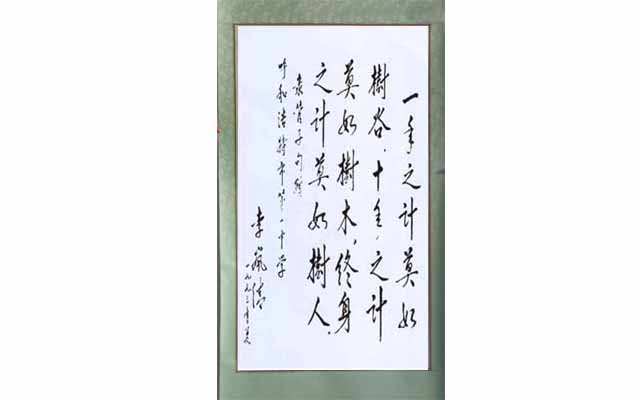 一年之計莫如
樹谷，十年之計
莫如樹木，終身
之計莫如樹人。
录管子句贈
呼和浩特市第一中学
李岚清
一九九三年夏